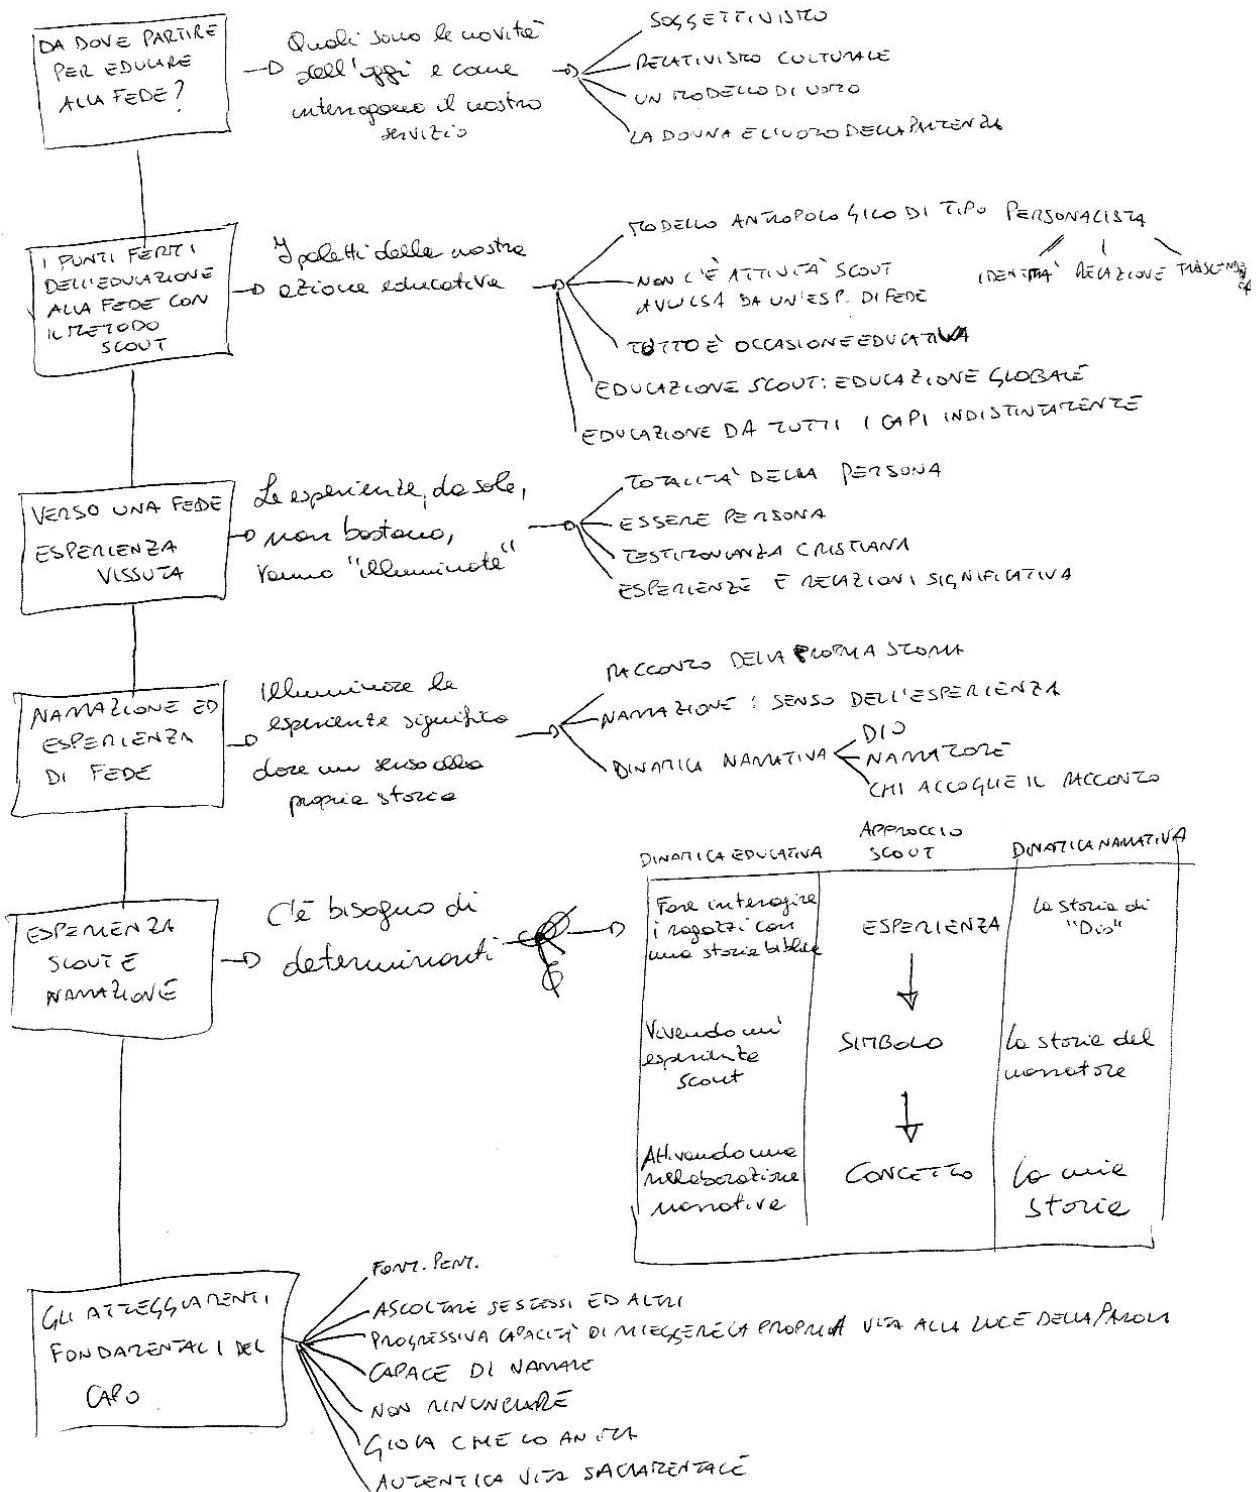 DA DOVE PARTIRE
PER EDUCARE
ALLA FEDE?
Quali sono le novità
dell'oggi e come
interrogano il nostro
servizio
SOGGETTIVISMO
RELATIVISMO CULTURALE
UN MODELLO DI UOMO
LA DONNA E L'UOMO DELLA PARTENZA
I PUNTI FERMI
DELL'EDUCAZIONE
ALLA FEDE CON
IL METODO
SCOUT
I paletti della nostra
azione educativa
MODELLO ANTROPOLOGICO DI TIPO PERSONALISTA
IDENTITÀ RELAZIONE
NON C'È ATTIVITÀ SCOUT
AVULSA DA UN'ESP. DI FEDE
TUTTO È OCCASIONE EDUCATIVA
EDUCAZIONE SCOUT: EDUCAZIONE GLOBALE
EDUCAZIONE DA TUTTI I CAPI INDISTINTAMENTE
VERSO UNA FEDE
ESPERIENZA
VISSUTA
Le esperienze, da sole,
non bastano,
vanno "illuminate"
TOTALITÀ DELLA PERSONA
ESSERE PERSONA
TESTIMONIANZA CRISTIANA
ESPERIENZE E RELAZIONI SIGNIFICATIVA
NARRAZIONE ED
ESPERIENZA
DI FEDE
Illuminare le
esperienze significa
dare un senso alla
propria storia
RACCONTO DELLA PROPRIA STORIA
NARRAZIONE: SENSO DELL'ESPERIENZA
DINAMICA NARRATIVA
DIO
NARRATORE
CHI ACCOGLIE IL RACCONTO
ESPERIENZA
SCOUT E
NARRAZIONE
C'è bisogno di
determinanti
DINAMICA EDUCATIVA
APPROCCIO
SCOUT
DINAMICA NARRATIVA
Fare interagire
i ragazzi con
una storia biblica
ESPERIENZA
La storia di
"Dio"
Vivendo un'
esperienza
scout
SIMBOLO
La storia del
narratore
Attivando una
rielaborazione
narrativa
CONCETTO
La mia
storia
GLI ATTEGGIAMENTI
FONDAMENTALI DEL
CAPO
FORM. PERM.
ASCOLTARE SE STESSI ED ALTRI
PROGRESSIVA CAPACITÀ DI RILEGGERE LA PROPRIA VITA ALLA LUCE DELLA PAROLA
CAPACE DI NARRARE
NON RINUNCIARE
GIOIA CHE LO ANIMA
AUTENTICA VITA SACRAMENTALE